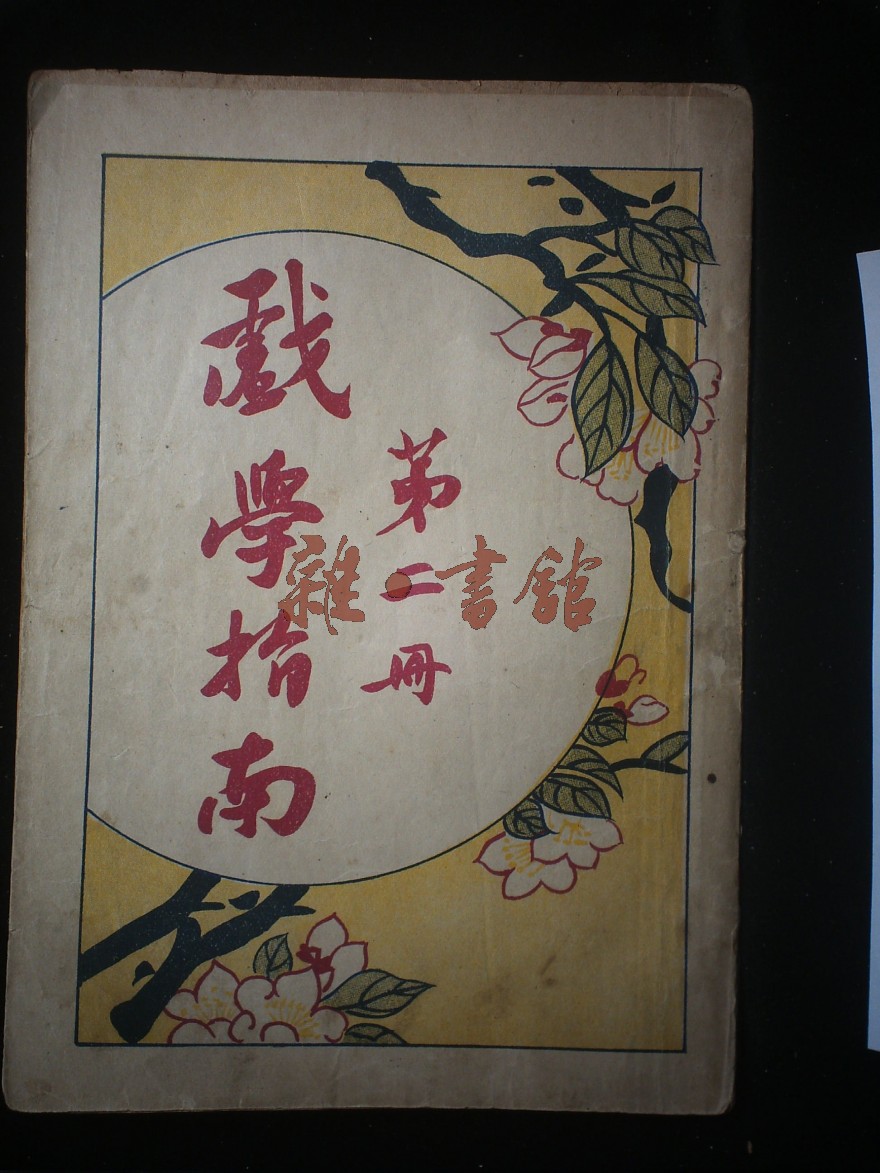 戲學指南
第二冊
雜·書館